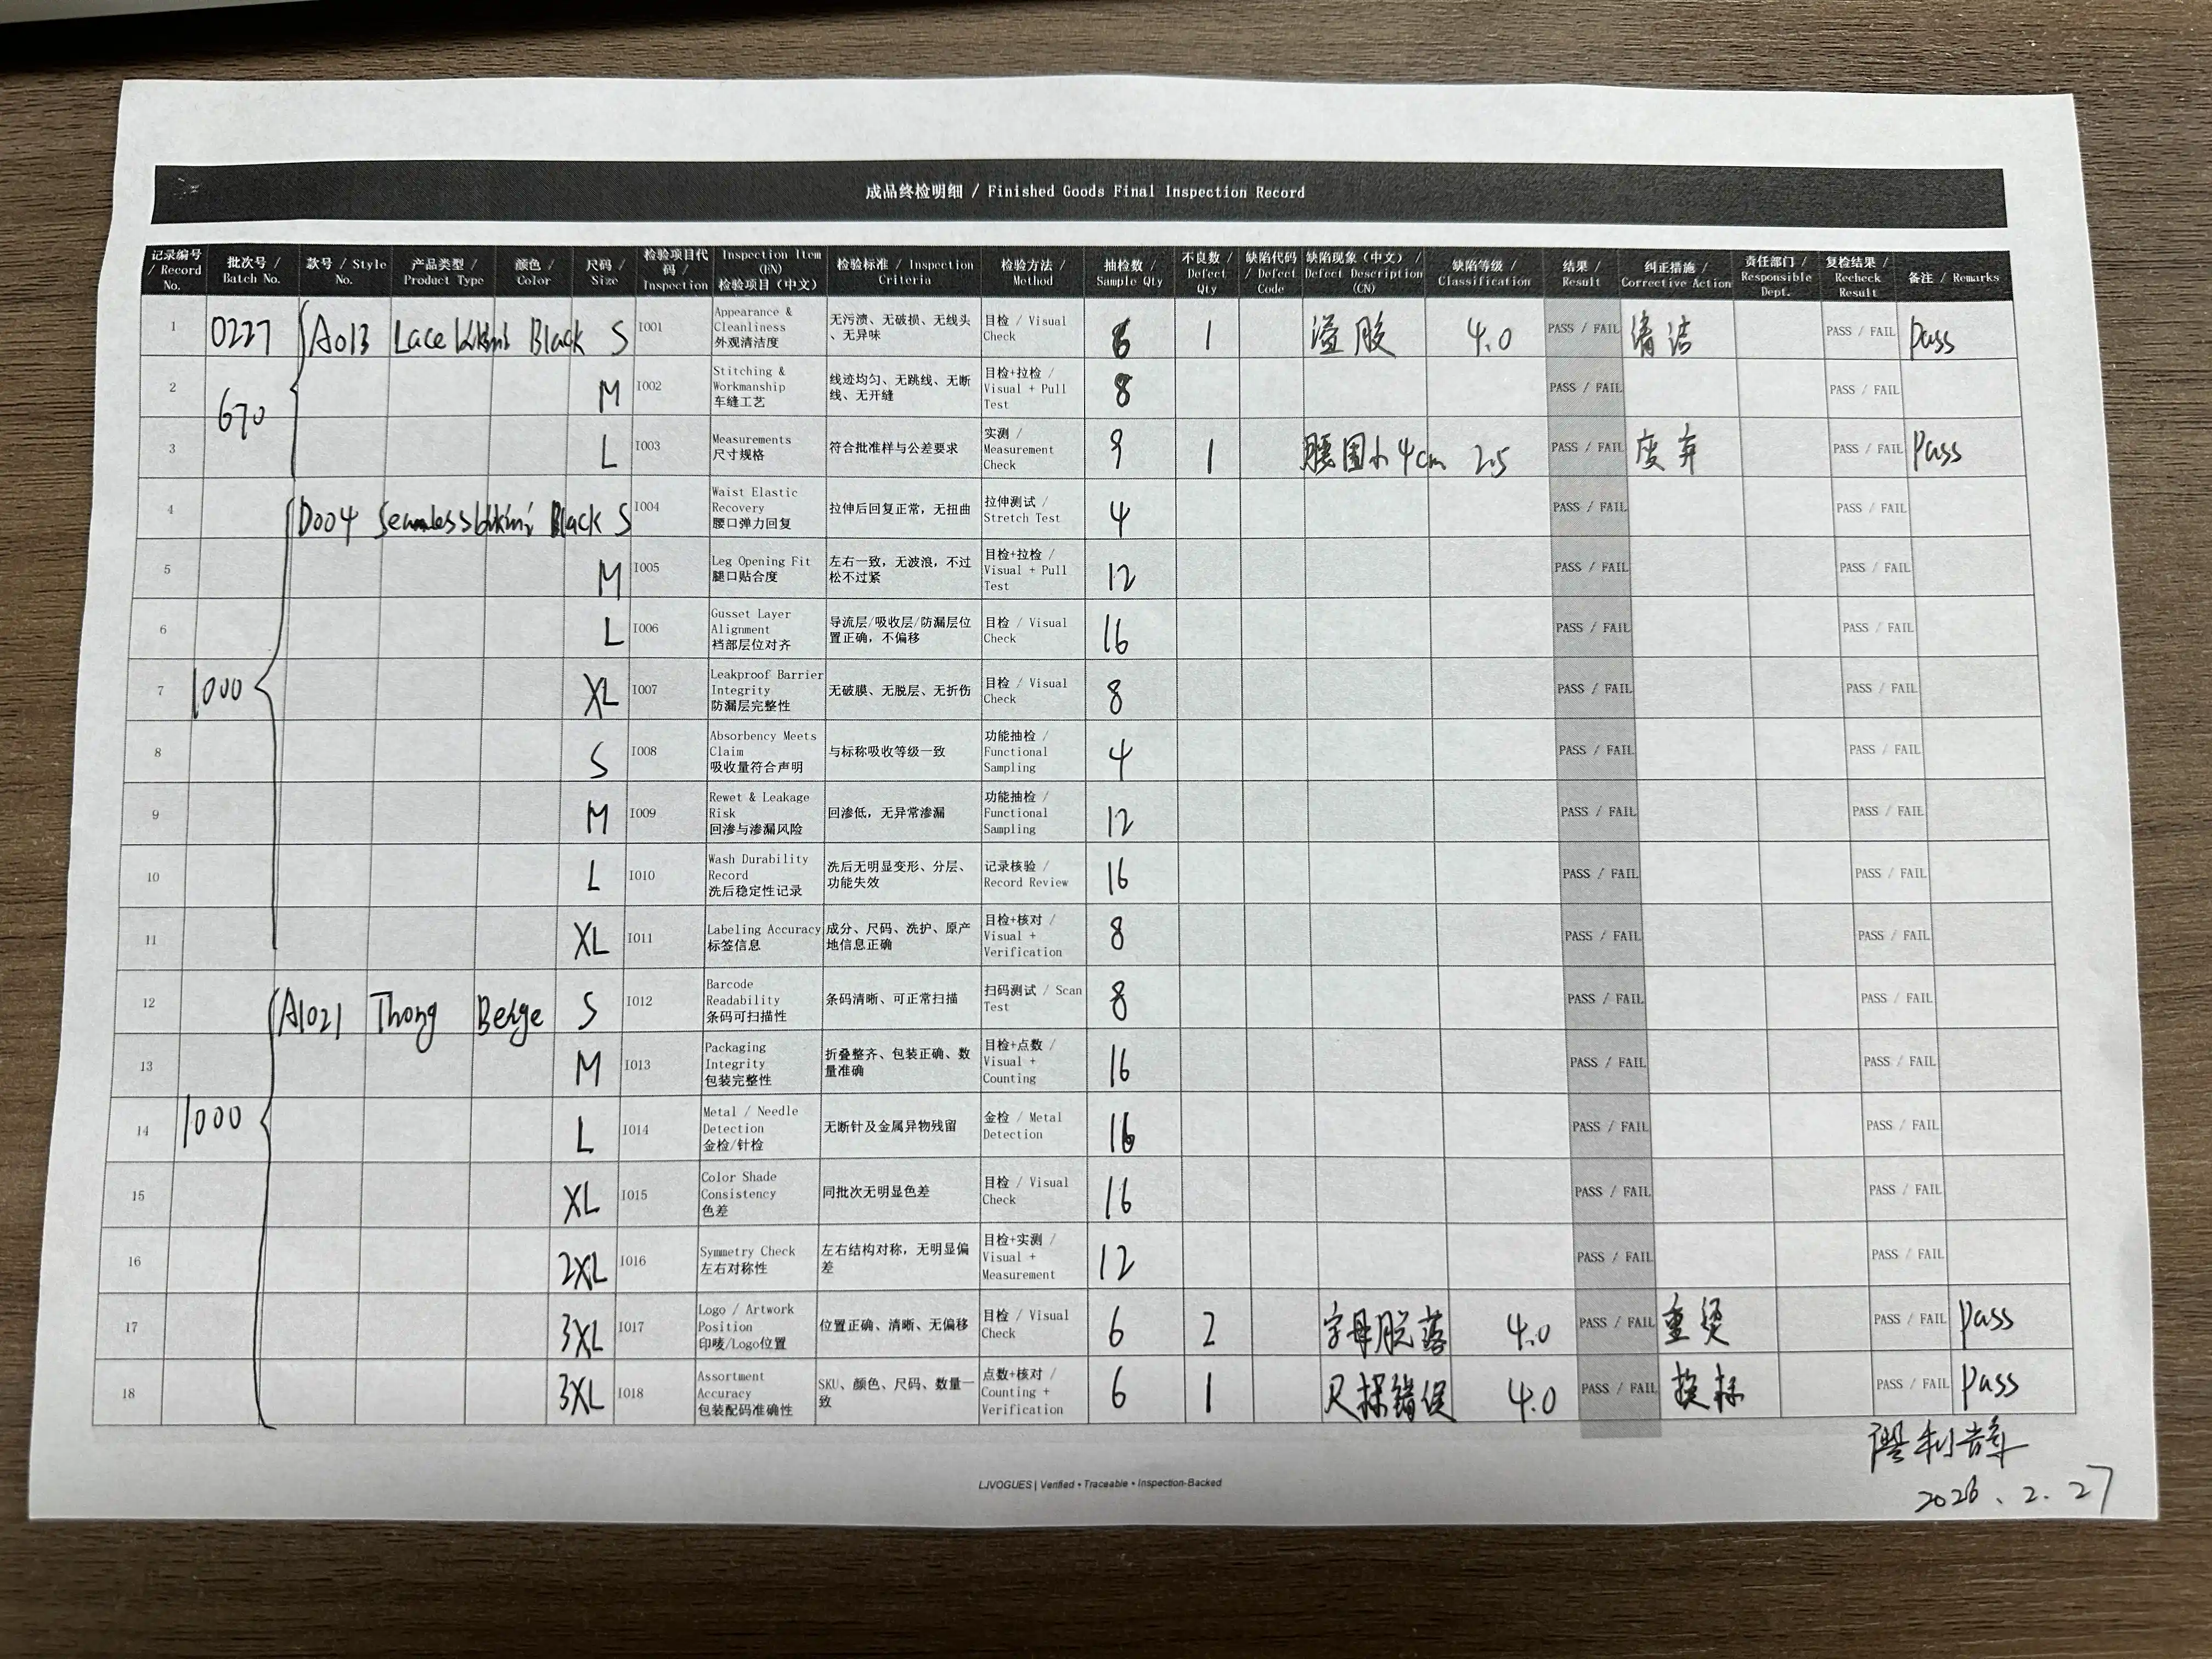 成品终检明细 / Finished Goods Final Inspection Record
记录编号 / Record No. 批次号 / Batch No. 款号 / Style No. 产品类型 / Product Type 颜色 / Color 尺码 / Size 检验项目代码 / Inspection Inspection Item (EN) 检验项目（中文） 检验标准 / Inspection Criteria 检验方法 / Method 抽检数 / Sample Qty 不良数 / Defect Qty 缺陷代码 / Defect Code 缺陷现象（中文） / Defect Description (CN) 缺陷等级 / Classification 结果 / Result 纠正措施 / Corrective Action 责任部门 / Responsible Dept. 复检结果 / Recheck Result 备注 / Remarks
1 0227 A013 Lace bikini Black S I001 Appearance & Cleanliness 外观清洁度 无污渍、无破损、无线头、无异味 目检 / Visual Check 6 1 溢胶 4.0 PASS / FAIL 清洁 PASS / FAIL pass
2 670 M I002 Stitching & Workmanship 车缝工艺 线迹均匀、无跳线、无断线、无开缝 目检+拉检 / Visual + Pull Test 8 PASS / FAIL PASS / FAIL
3 L I003 Measurements 尺寸规格 符合批准样与公差要求 实测 / Measurement Check 9 1 腰围小4cm 2.5 PASS / FAIL 废弃 PASS / FAIL Pass
4 D004 Seamless bikini Black S I004 Waist Elastic Recovery 腰口弹力回复 拉伸后回复正常，无扭曲 拉伸测试 / Stretch Test 4 PASS / FAIL PASS / FAIL
5 M I005 Leg Opening Fit 腿口贴合度 左右一致，无波浪，不过松不过紧 目检+拉检 / Visual + Pull Test 12 PASS / FAIL PASS / FAIL
6 L I006 Gusset Layer Alignment 裆部层位对齐 导流层/吸收层/防漏层位置正确，不偏移 目检 / Visual Check 16 PASS / FAIL PASS / FAIL
7 1000 XL I007 Leakproof Barrier Integrity 防漏层完整性 无破膜、无脱层、无折伤 目检 / Visual Check 8 PASS / FAIL PASS / FAIL
8 S I008 Absorbency Meets Claim 吸收量符合声明 与标称吸收等级一致 功能抽检 / Functional Sampling 4 PASS / FAIL PASS / FAIL
9 M I009 Rewet & Leakage Risk 回渗与渗漏风险 回渗低，无异常渗漏 功能抽检 / Functional Sampling 12 PASS / FAIL PASS / FAIL
10 L I010 Wash Durability Record 洗后稳定性记录 洗后无明显变形、分层、功能失效 记录核验 / Record Review 16 PASS / FAIL PASS / FAIL
11 XL I011 Labeling Accuracy 标签信息 成分、尺码、洗护、原产地信息正确 目检+核对 / Visual + Verification 8 PASS / FAIL PASS / FAIL
12 A1021 Thong Beige S I012 Barcode Readability 条码可扫描性 条码清晰、可正常扫描 扫码测试 / Scan Test 8 PASS / FAIL PASS / FAIL
13 M I013 Packaging Integrity 包装完整性 折叠整齐、包装正确、数量准确 目检+点数 / Visual + Counting 16 PASS / FAIL PASS / FAIL
14 1000 L I014 Metal / Needle Detection 金检/针检 无断针及金属异物残留 金检 / Metal Detection 16 PASS / FAIL PASS / FAIL
15 XL I015 Color Shade Consistency 色差 同批次无明显色差 目检 / Visual Check 16 PASS / FAIL PASS / FAIL
16 2XL I016 Symmetry Check 左右对称性 左右结构对称，无明显偏差 目检+实测 / Visual + Measurement 12 PASS / FAIL PASS / FAIL
17 3XL I017 Logo / Artwork Position 印唛/Logo位置 位置正确、清晰、无偏移 目检 / Visual Check 6 2 字母脱落 4.0 PASS / FAIL 重烫 PASS / FAIL pass
18 3XL I018 Assortment Accuracy 包装配码准确性 SKU、颜色、尺码、数量一致 点数+核对 / Counting + Verification 6 1 尺标错误 4.0 PASS / FAIL 换标 PASS / FAIL pass
2026.2.27
LJVOGUES | Verified • Traceable • Inspection-Backed